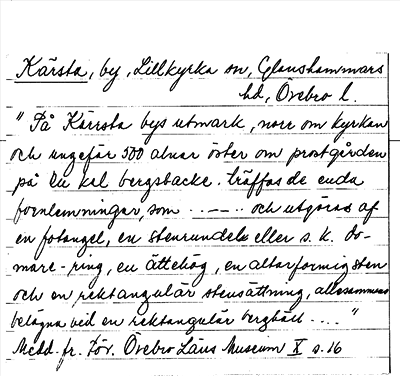 Kärsta, by, Lillkyrka sn, Glanshammars
hd, Örebro l.
"På Kärrsta bys utmark, norr om kyrkan
och ungefär 500 alnar öster om prostgården
på en kal bergsbacke. träffas de enda
fornlemningar, som ..—.. och utgöras af
en fotangel, en stenrundel eller s. k. do-
mare-ring, en ättehög, en altarformig sten
och en rektangulär stensättning, allesammans
belägna vid en rektangulär berghäll ...."
Medd. fr. För. Örebro Läns Museum X s. 16